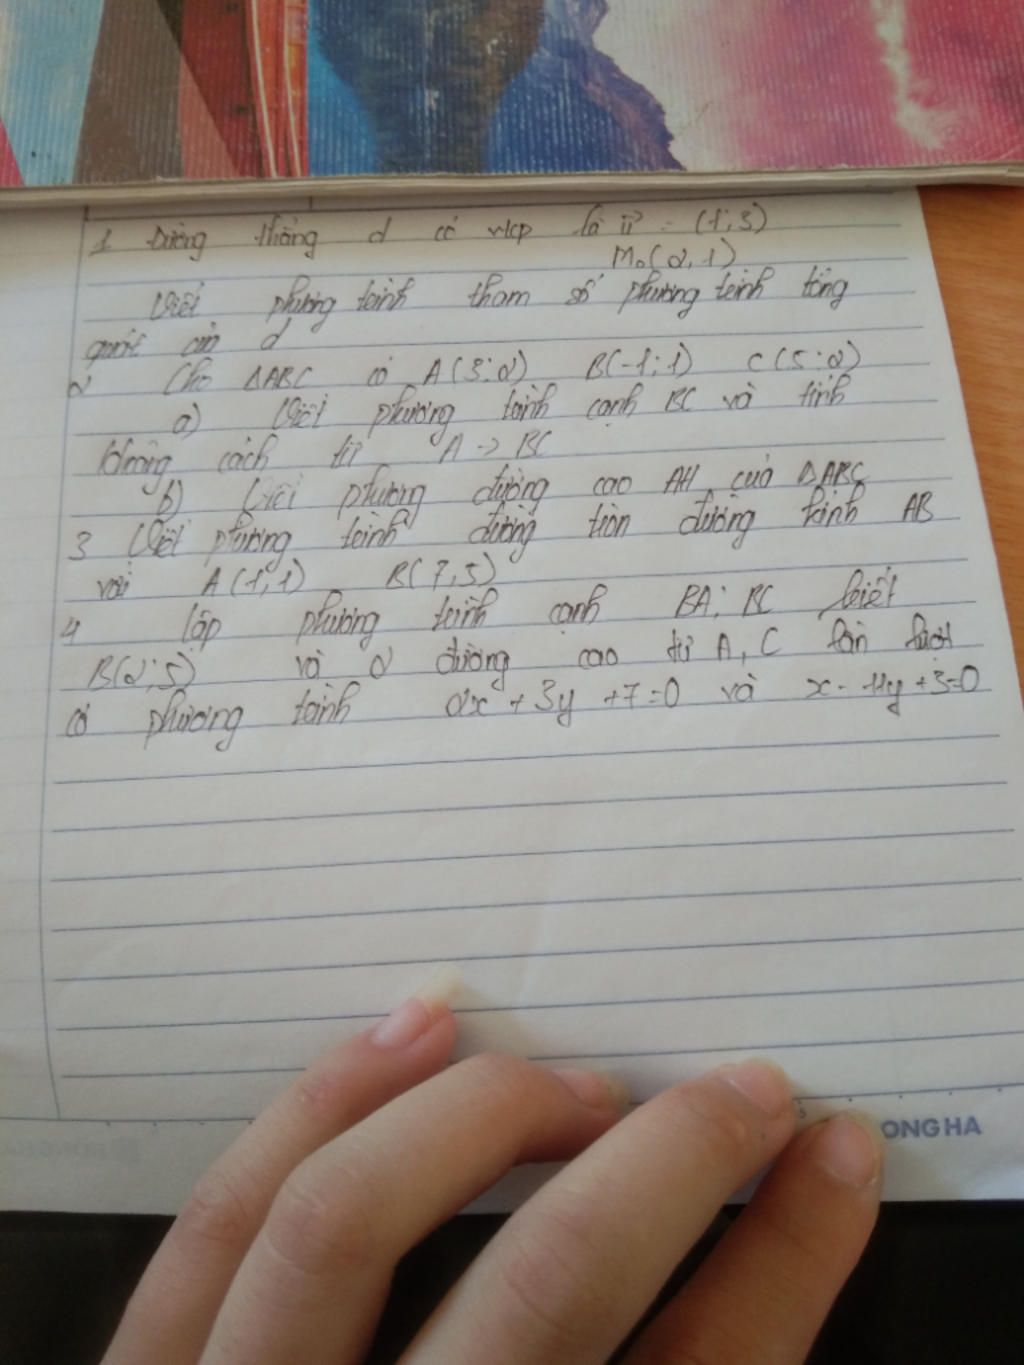 1 Đường thẳng d có vtcp là u = (1; 3)
M₀(2, 1)
Viết phương trình tham số phương trình tổng
quát của d
2 Cho ΔABC có A(3; 2) B(-1; 1) C(5; 2)
a) Viết phương trình cạnh BC và tính
khoảng cách từ A -> BC
b) Viết phương đường cao AH của ΔABC
3 Viết phương trình đường tròn đường kính AB
với A(1; 1) B(7, 5)
4 lập phương trình cạnh BA; BC biết
B(2; 5) và 2 đường cao từ A, C lần lượt
có phương trình 2x + 3y + 7 = 0 và x - 11y + 3 = 0
ONG HA